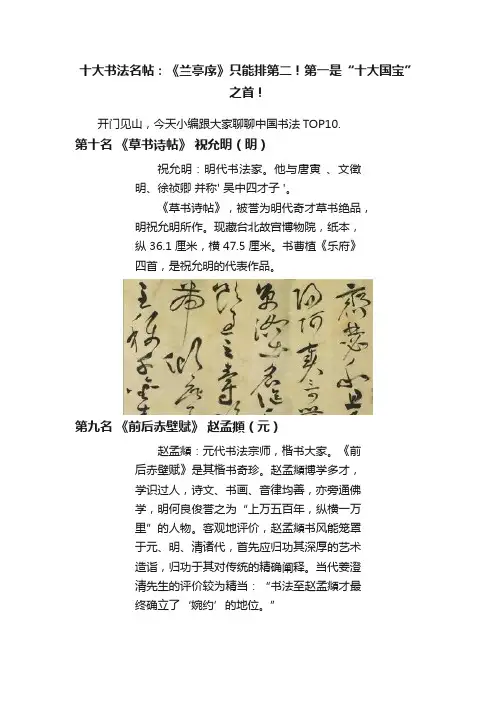 十大书法名帖：《兰亭序》只能排第二！第一是“十大国宝”
之首！
开门见山，今天小编跟大家聊聊中国书法TOP10.
第十名 《草书诗帖》 祝允明（明）
祝允明：明代书法家。他与唐寅 、文徵
明、徐祯卿 并称' 吴中四才子 '。
《草书诗帖》，被誉为明代奇才草书绝品，
明祝允明所作。现藏台北故宫博物院，纸本，
纵 36.1 厘米，横 47.5 厘米。书曹植《乐府》
四首，是祝允明的代表作品。
第九名 《前后赤壁赋》 赵孟頫（元）
赵孟頫：元代书法宗师，楷书大家。《前
后赤壁赋》是其楷书奇珍。赵孟頫博学多才，
学识过人，诗文、书画、音律均善，亦旁通佛
学，明何良俊誉之为“上万五百年，纵横一万
里”的人物。客观地评价，赵孟頫书风能笼罩
于元、明、清诸代，首先应归功其深厚的艺术
造诣，归功于其对传统的精确阐释。当代姜澄
清先生的评价较为精当：“书法至赵孟頫才最
终确立了‘婉约’的地位。”